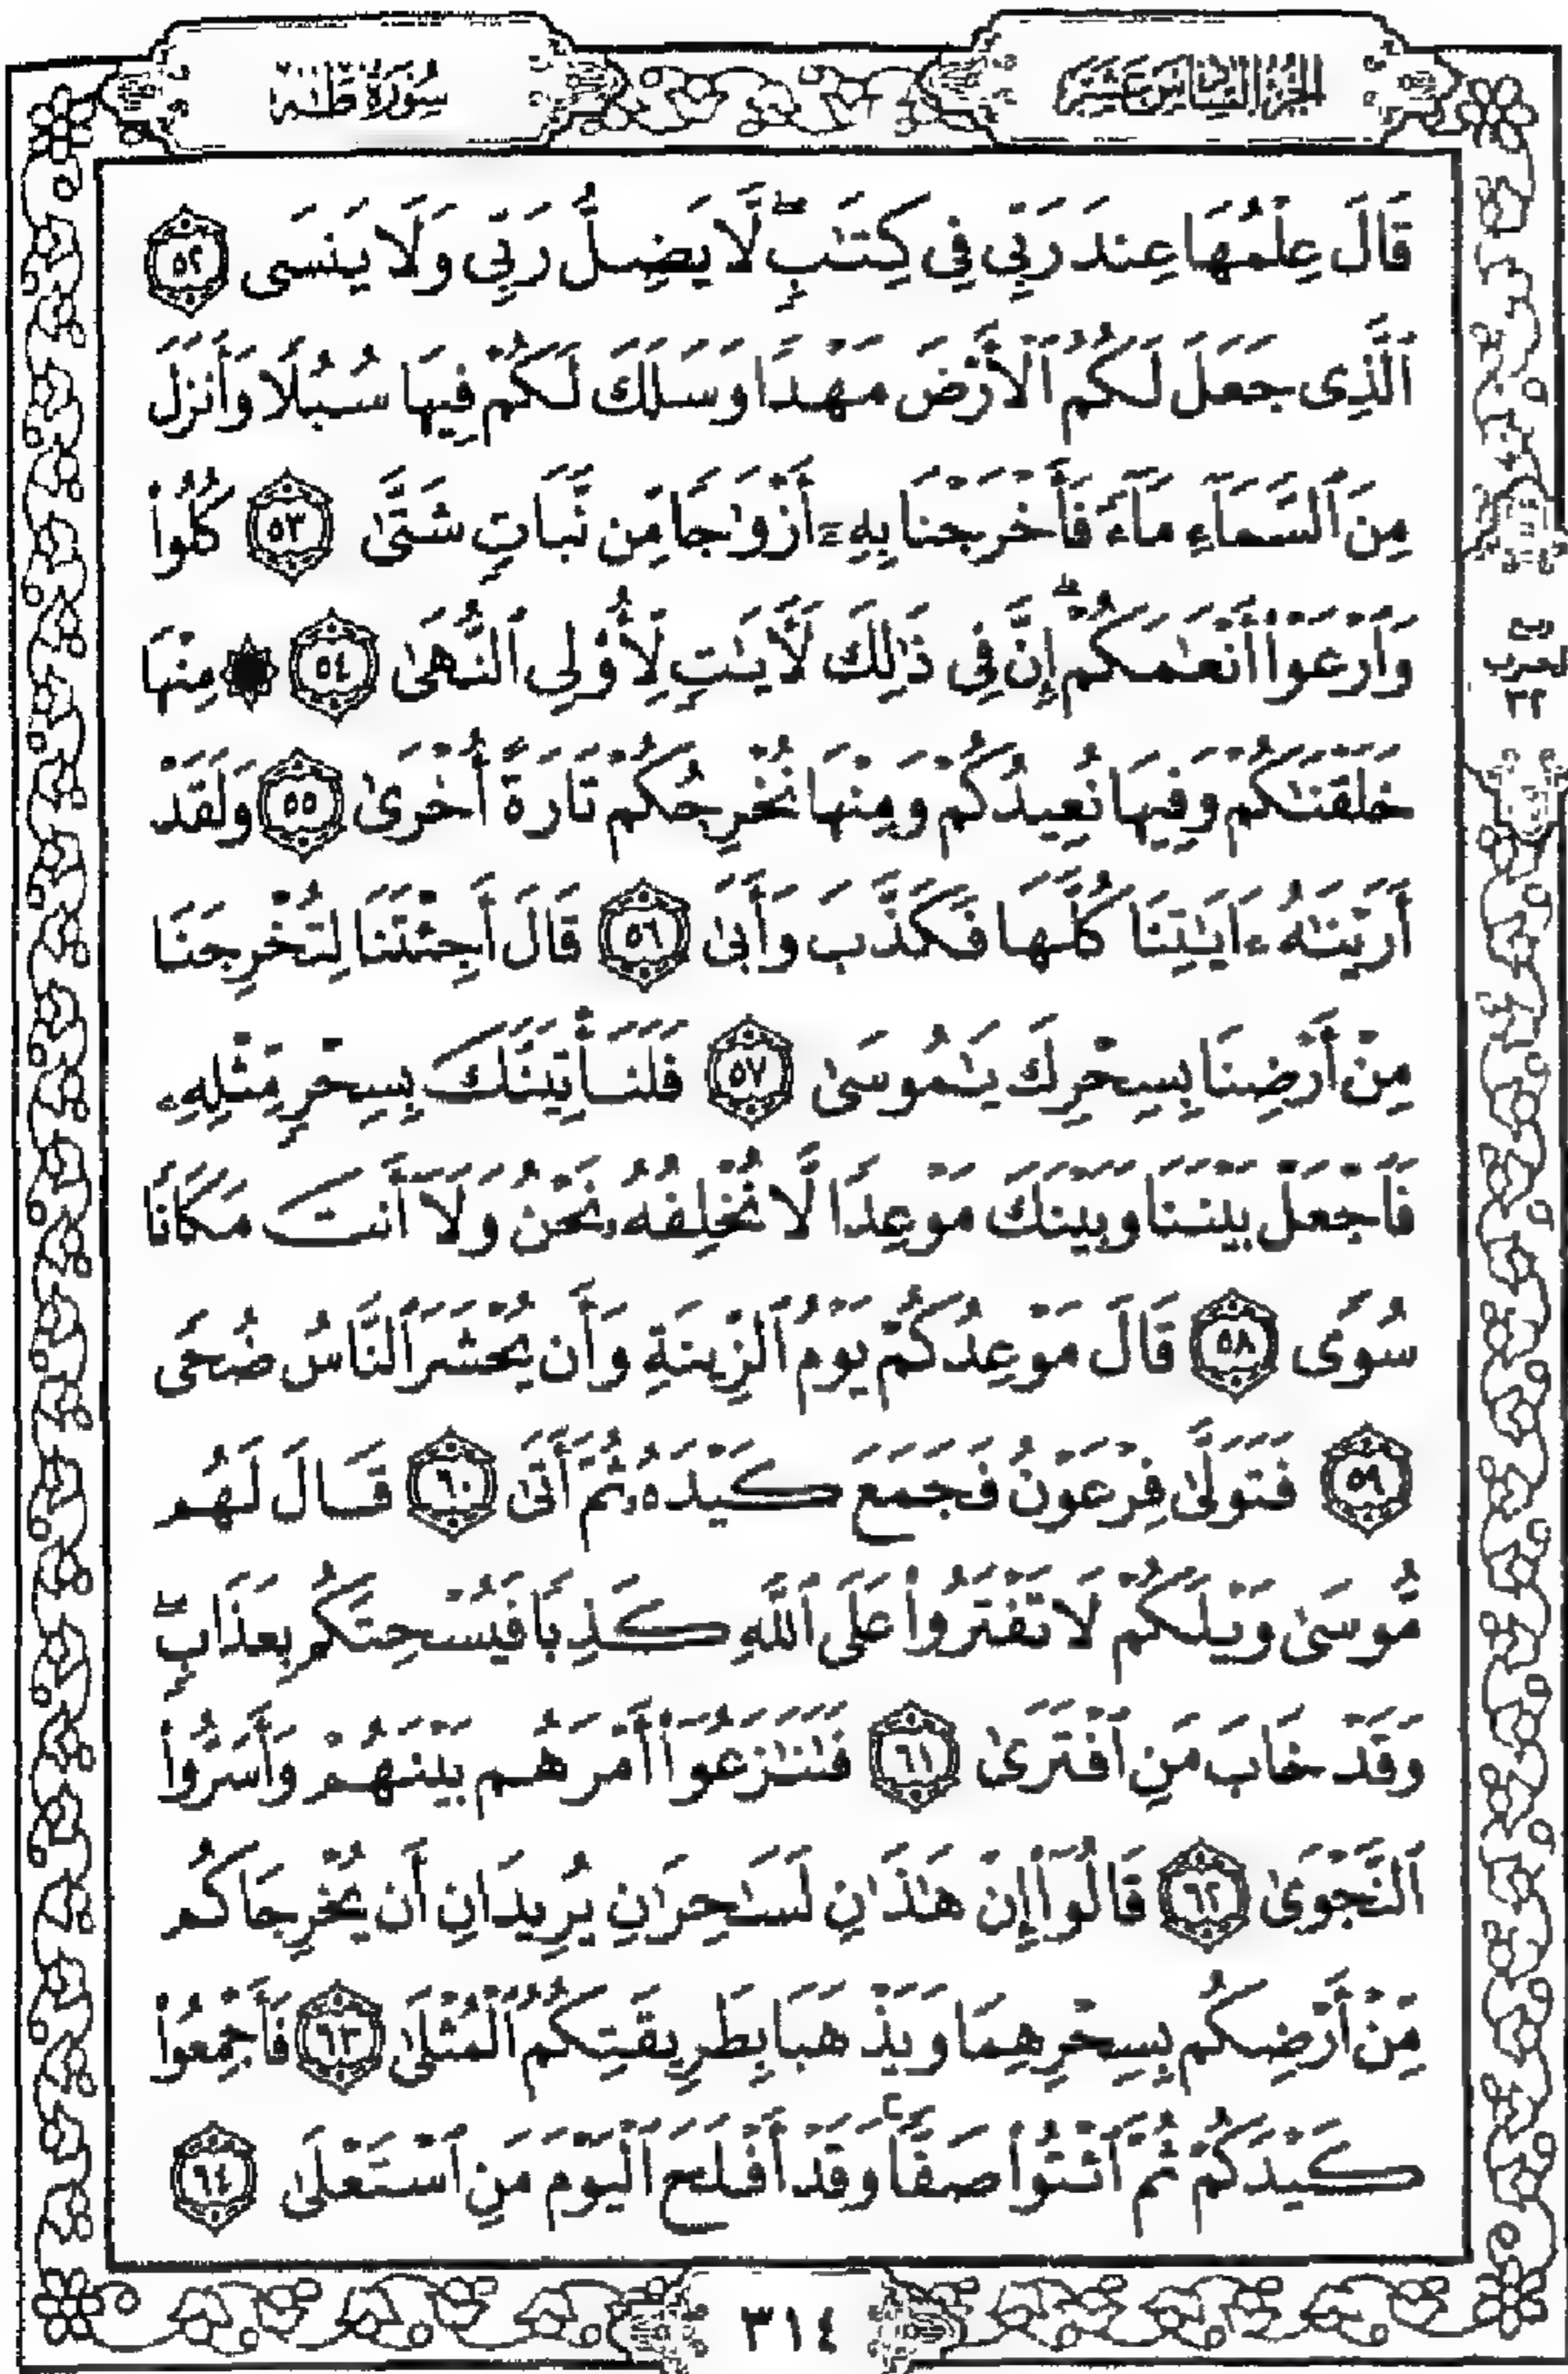 الجزء السادس عشر
سورة طه
قَالَ عِلْمُهَا عِندَ رَبِّى فِى كِتَٰبٍۖ لَّا يَضِلُّ رَبِّى وَلَا يَنسَى ٥٢
ٱلَّذِى جَعَلَ لَكُمُ ٱلْأَرْضَ مَهْدًا وَسَلَكَ لَكُمْ فِيهَا سُبُلًا وَأَنزَلَ
مِنَ ٱلسَّمَآءِ مَآءً فَأَخْرَجْنَا بِهِۦٓ أَزْوَٰجًا مِّن نَّبَاتٍ شَتَّىٰ ٥٣ كُلُوا۟
وَٱرْعَوْا۟ أَنْعَٰمَكُمْۗ إِنَّ فِى ذَٰلِكَ لَءَايَٰتٍ لِّأُو۟لِى ٱلنُّهَىٰ ٥٤ ۞ مِنْهَا
خَلَقْنَٰكُمْ وَفِيهَا نُعِيدُكُمْ وَمِنْهَا نُخْرِجُكُمْ تَارَةً أُخْرَىٰ ٥٥ وَلَقَدْ
أَرَيْنَٰهُ ءَايَٰتِنَا كُلَّهَا فَكَذَّبَ وَأَبَىٰ ٥٦ قَالَ أَجِئْتَنَا لِتُخْرِجَنَا
مِنْ أَرْضِنَا بِسِحْرِكَ يَٰمُوسَىٰ ٥٧ فَلَنَأْتِيَنَّكَ بِسِحْرٍ مِّثْلِهِۦ
فَٱجْعَلْ بَيْنَنَا وَبَيْنَكَ مَوْعِدًا لَّا نُخْلِفُهُۥ نَحْنُ وَلَآ أَنتَ مَكَانًا
سُوًى ٥٨ قَالَ مَوْعِدُكُمْ يَوْمُ ٱلزِّينَةِ وَأَن يُحْشَرَ ٱلنَّاسُ ضُحًى
٥٩ فَتَوَلَّىٰ فِرْعَوْنُ فَجَمَعَ كَيْدَهُۥ ثُمَّ أَتَىٰ ٦٠ قَالَ لَهُم
مُّوسَىٰ وَيْلَكُمْ لَا تَفْتَرُوا۟ عَلَى ٱللَّهِ كَذِبًا فَيُسْحِتَكُم بِعَذَابٍۖ
وَقَدْ خَابَ مَنِ ٱفْتَرَىٰ ٦١ فَتَنَٰزَعُوٓا۟ أَمْرَهُم بَيْنَهُمْ وَأَسَرُّوا۟
ٱلنَّجْوَىٰ ٦٢ قَالُوٓا۟ إِنْ هَٰذَٰنِ لَسَٰحِرَٰنِ يُرِيدَانِ أَن يُخْرِجَاكُم
مِّنْ أَرْضِكُم بِسِحْرِهِمَا وَيَذْهَبَا بِطَرِيقَتِكُمُ ٱلْمُثْلَىٰ ٦٣ فَأَجْمِعُوا۟
كَيْدَكُمْ ثُمَّ ٱئْتُوا۟ صَفًّاۚ وَقَدْ أَفْلَحَ ٱلْيَوْمَ مَنِ ٱسْتَعْلَىٰ ٦٤
الحزب
٣٢
٣١٤